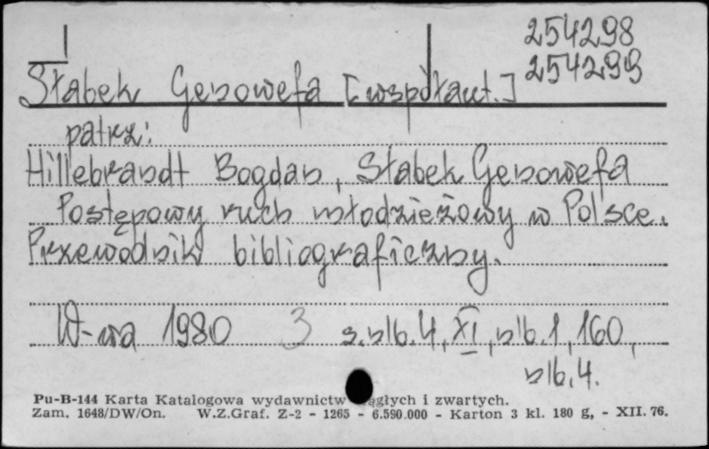 254298
254299
Słabek Genowefa [współaut.]
patrz:
Hillebrandt Bogdan, Słabek Genowefa
Postępowy ruch młodzieżowy w Polsce.
Przewodnik bibliograficzny.
W-wa 1980 3 s.nlb.4, XI, nlb.1, 160,
nlb.4.
Pu-B-144 Karta Katalogowa wydawnictw ciągłych i zwartych.
Zam. 1648/DW/On. W.Z.Graf. Z-2 - 1265 - 6.590.000 - Karton 3 kl. 180 g, - XII. 76.